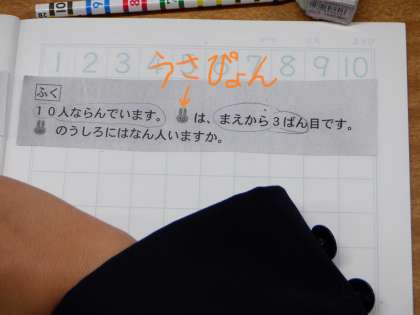 1 2 3 4 5 6 7 8 9 10
うさぴょん
ふく
10人ならんでいます。 は、まえから3ばん目です。
のうしろにはなん人いますか。